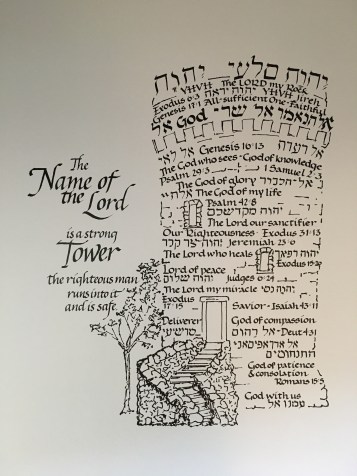 The
Name of
the Lord
is a strong
Tower
the righteous man
runs into it
and is safe.
יהוה סלעי יהוה
YHVH The LORD my Rock
Exodus 6:3 יהוה יראה YHVH Jireh
Genesis 17:1 All-sufficient One-Faithful
God אל שדי
Genesis 16:13
The God who sees-God of knowledge
Psalm 29:3 1 Samuel 2:3
The God of glory
The God of my life
Psalm 42:8
יהוה מקדשכם
The Lord our sanctifier
Our Righteousness-Exodus 31:13
Jeremiah 23:6
The Lord who heals
Exodus 15:
Lord of peace
יהוה שלום Judges 6:24
The Lord my miracle יהוה נסי
Exodus
17:15 Savior-Isaiah 43:11
Deliverer God of compassion
אל רחום-Deut 4:31
God of patience
& consolation
Romans 15:5
God with us
עמנו אל